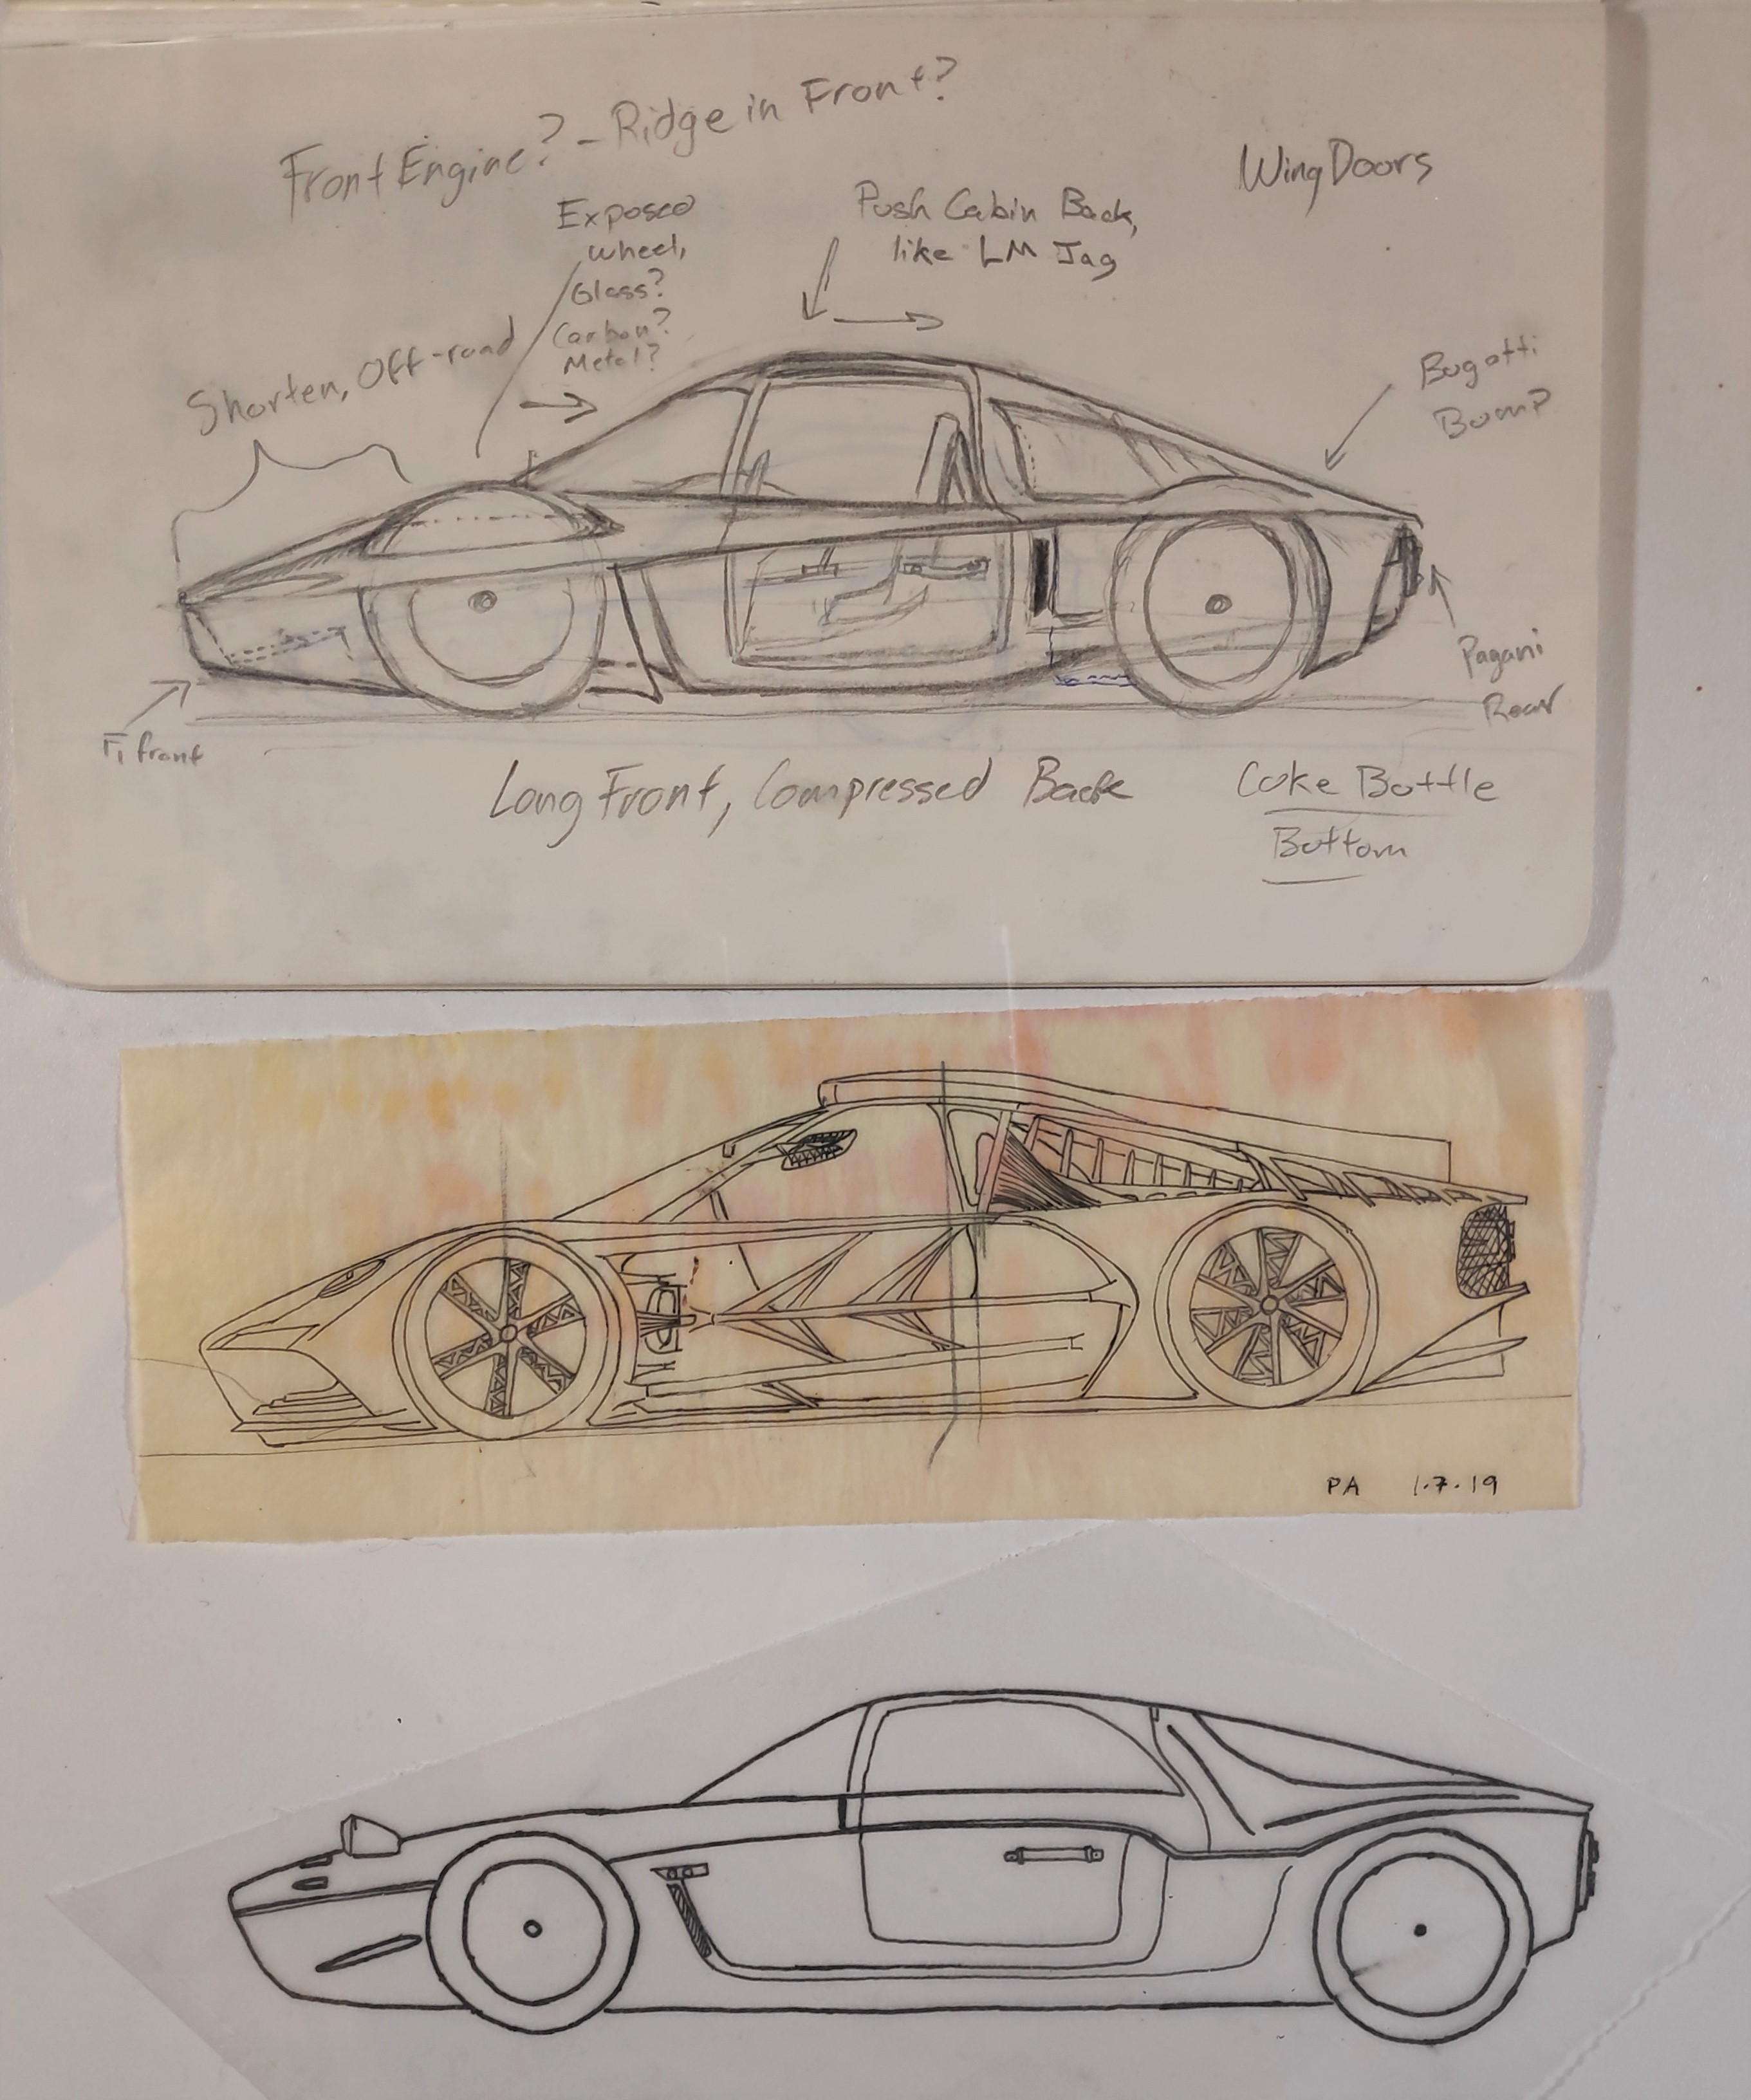 Front Engine? - Ridge in Front?
Wing Doors
Exposed
Wheel,
Glass?
Carbon?
Metal?
Push Cabin Back,
like LM Jag
Shorten, Off-road
Bugatti
Bump
Pagani
Rear
F1 front
Long Front, Compressed Back
Coke Bottle
Bottom
PA 1.7.19